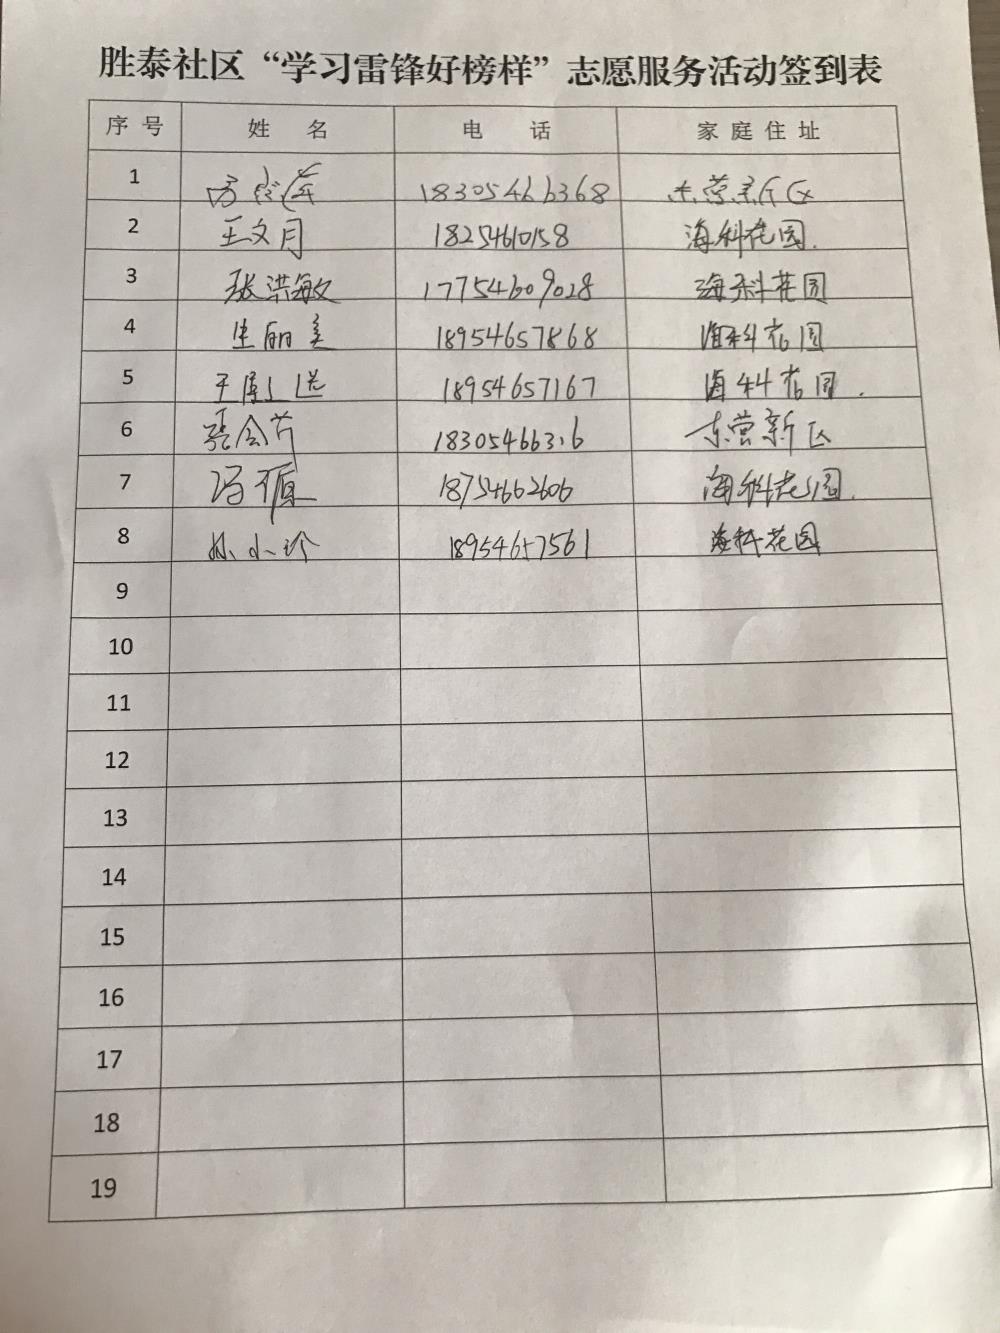 胜泰社区“学习雷锋好榜样”志愿服务活动签到表
序号 姓名 电话 家庭住址
1 18305466368 东营新区
2 王文月 18254610158 海科花园.
3 张洪敏 17754609028 海科花园
4 生丽美 18954657868 海科花园
5 18954657167 海科花园.
6 张会芹 东营新区
7 冯 18754662606 海科花园.
8 孙小珍 18954657561 海科花园
9
10
11
12
13
14
15
16
17
18
19